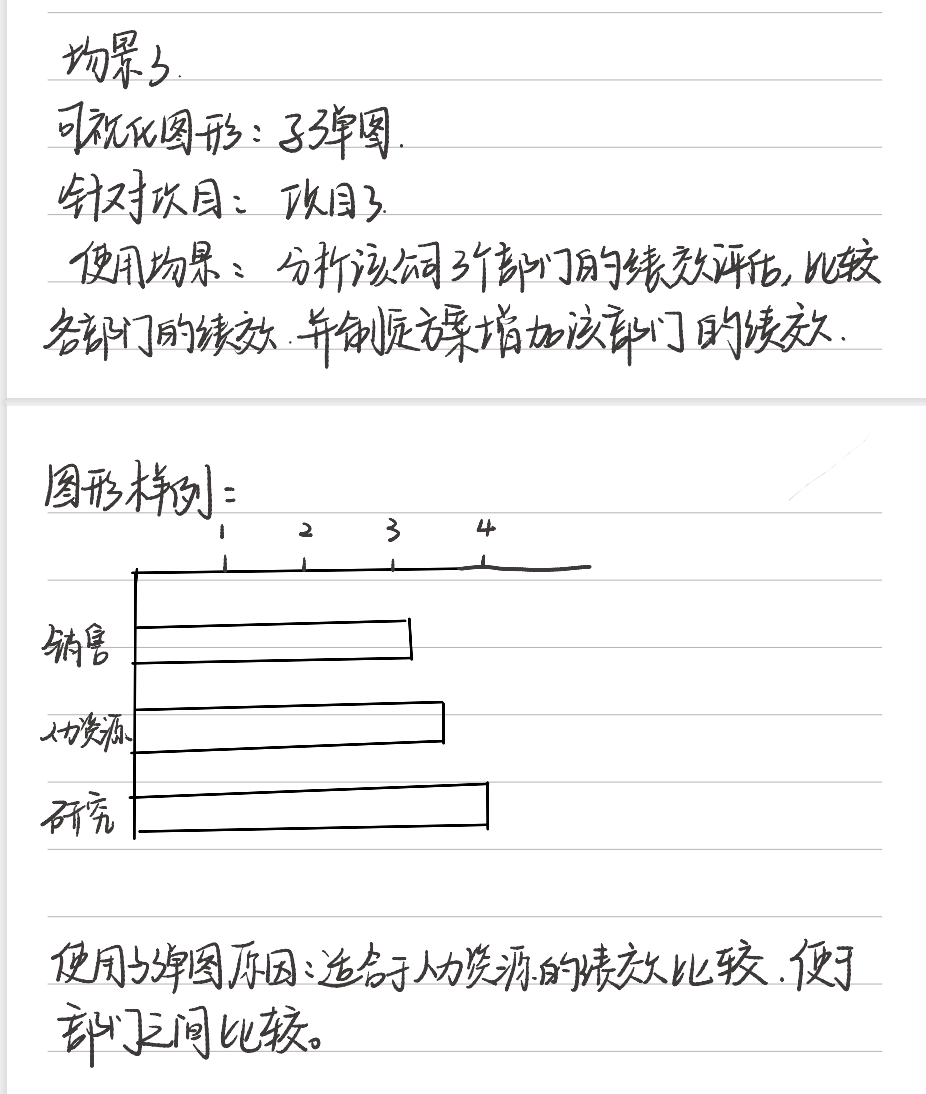 场景3.
可视化图形：子弹图.
针对项目：项目3.
使用场景：分析该公司3个部门的绩效评估,比较
各部门的绩效.并制定方案增加该部门的绩效.
图形样例：
1 2 3 4
销售
人力资源
研究
使用子弹图原因：适合于人力资源的绩效比较.便于
部门之间比较。